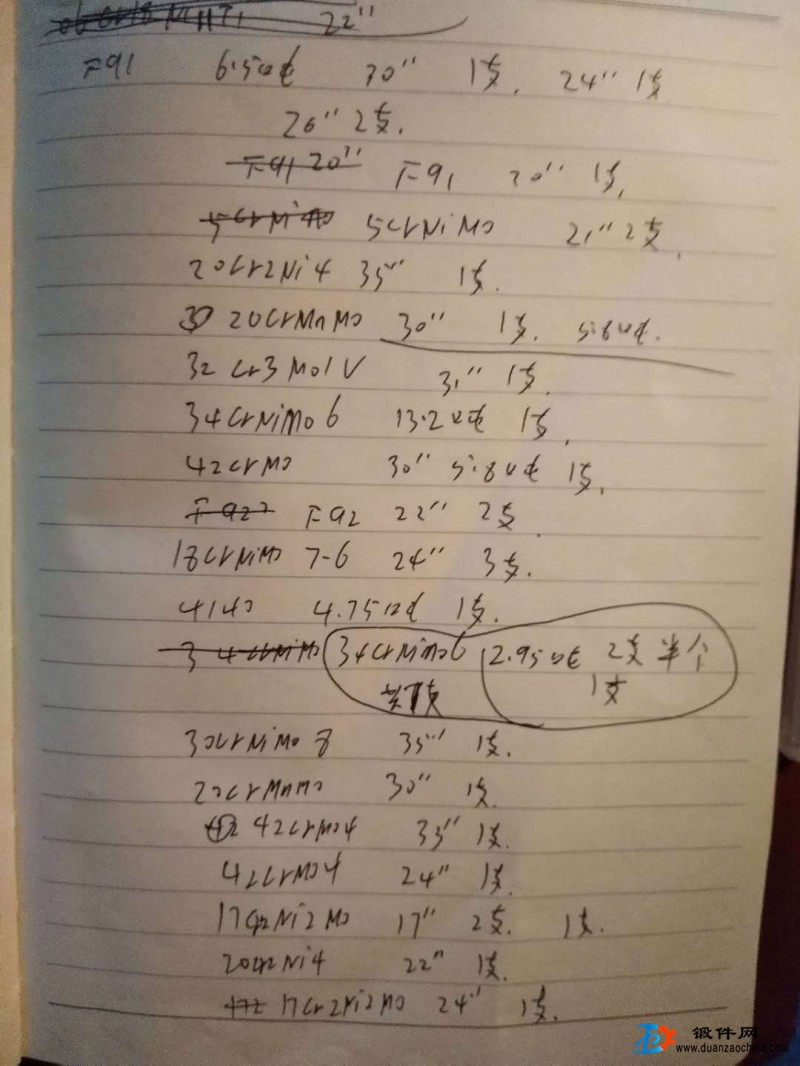 22''
F91 6.5吨 30'' 1支. 24'' 1支
26'' 2支.
F91 20'' F91 20'' 1支.
5CrNiMo 5CrNiMo 21'' 2支.
20Cr2Ni4 35'' 1支.
20CrMnMo 30'' 1支. 5.8吨.
32Cr3Mo1V 31'' 1支.
34CrNiMo6 13.2吨 1支.
42CrMo 30'' 5.8吨 1支.
F92 F92 22'' 2支.
18CrNiMo 7-6 24'' 3支.
4140 4.75吨 1支.
34CrNiMo 34CrNiMo6 2.95吨 2支 半个
1支
30CrNiMo8 35'' 1支.
20CrMnMo 30'' 1支.
42CrMo4 35'' 1支.
42CrMo4 24'' 1支.
17Cr2Ni2Mo 17'' 2支. 1支.
20Cr2Ni4 22'' 1支.
17Cr2Ni2Mo 24'' 1支.
锻件网
www.duanzaochina.com